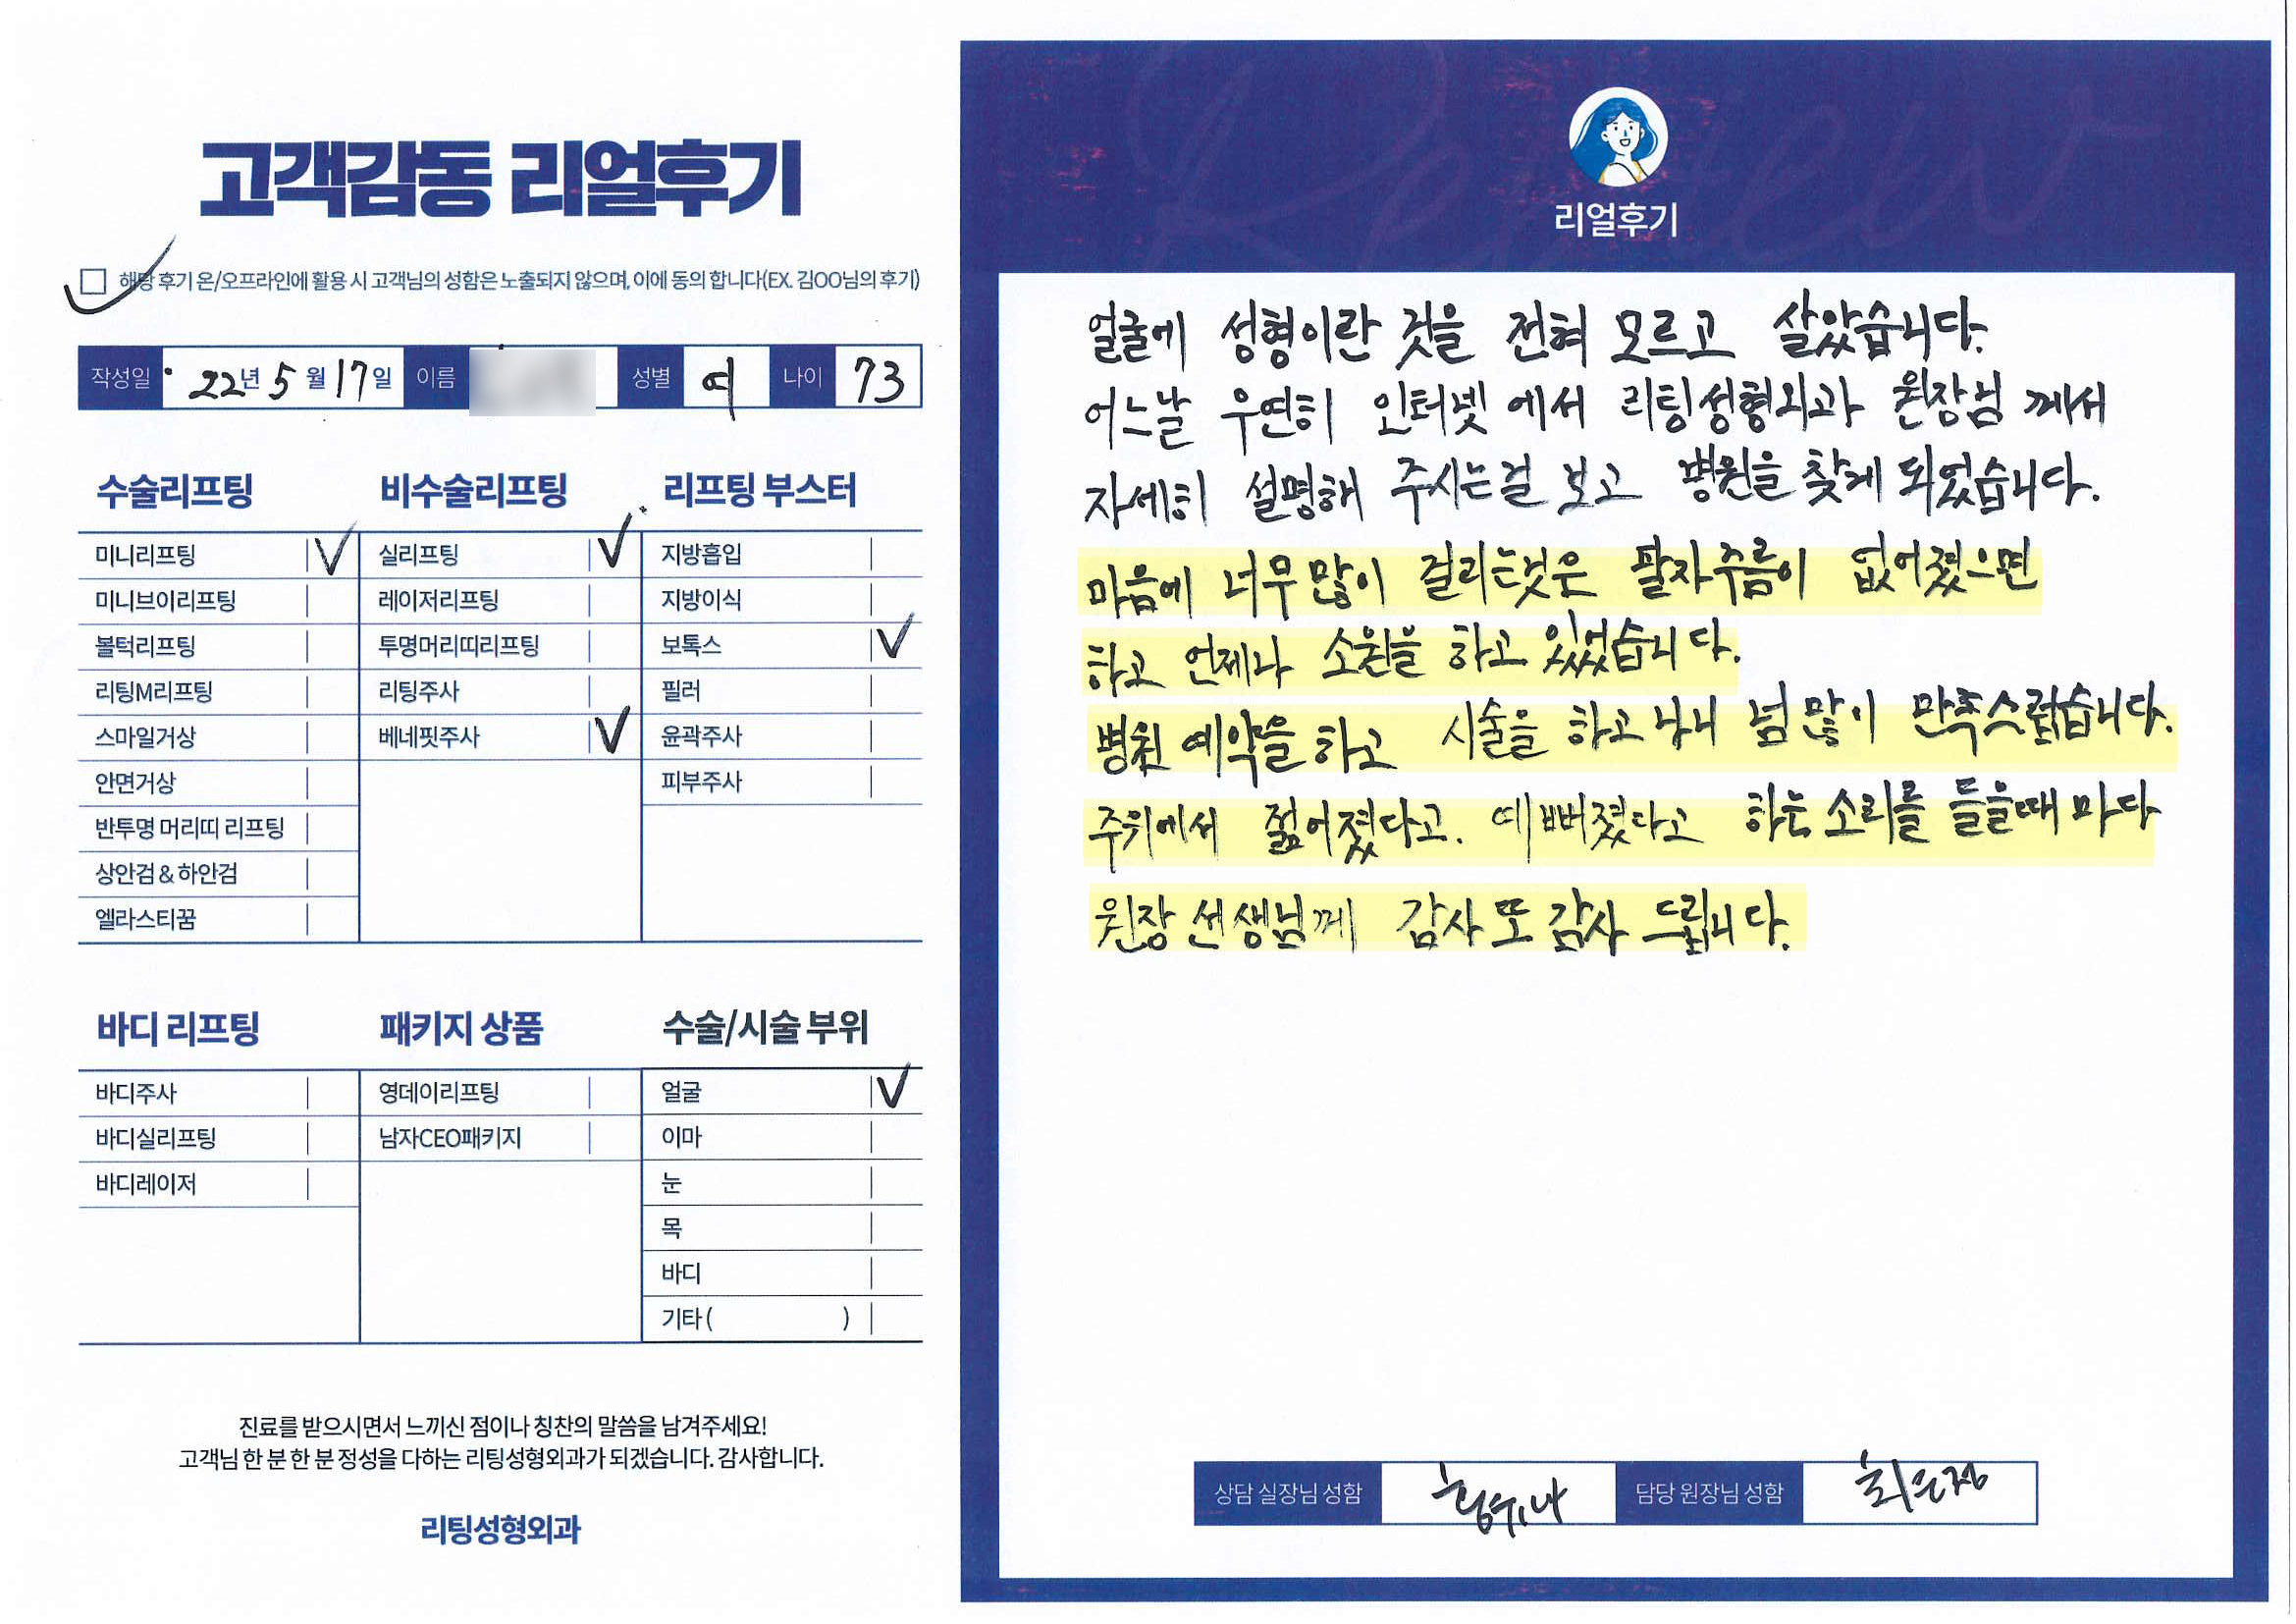 고객감동 리얼후기
해당 후기 온/오프라인에 활용 시 고객님의 성함은 노출되지 않으며, 이에 동의 합니다(EX. 김OO님의 후기)
작성일 22년 5월 17일 이름 성별 여 나이 73
수술리프팅 비수술리프팅 리프팅 부스터
미니리프팅 실리프팅 지방흡입
미니브이리프팅 레이저리프팅 지방이식
볼턱리프팅 투명머리띠리프팅 보톡스
리팅M리프팅 리팅주사 필러
스마일거상 베네핏주사 윤곽주사
안면거상 피부주사
반투명 머리띠 리프팅
상안검 & 하안검
엘라스티꿈
바디 리프팅 패키지 상품 수술/시술 부위
바디주사 영데이리프팅 얼굴
바디실리프팅 남자CEO패키지 이마
바디레이저 눈
목
바디
기타 ( )
진료를 받으시면서 느끼신 점이나 칭찬의 말씀을 남겨주세요!
고객님 한 분 한 분 정성을 다하는 리팅성형외과가 되겠습니다. 감사합니다.
리팅성형외과
Review
리얼후기
얼굴에 성형이란 것을 전혀 모르고 살았습니다.
어느날 우연히 인터넷 에서 리팅성형외과 원장님 께서
자세히 설명해 주시는걸 보고 병원을 찾게 되었습니다.
마음에 너무 많이 걸리는것은 팔자주름이 없어졌으면
하고 언제나 소원을 하고 있었습니다.
병원 예약을 하고 시술을 하고 나니 넘 많이 만족스럽습니다.
주위에서 젊어졌다고. 예뻐졌다고 하는 소리를 들을때 마다
원장 선생님께 감사 또 감사 드립니다.
상담 실장님 성함 담당 원장님 성함